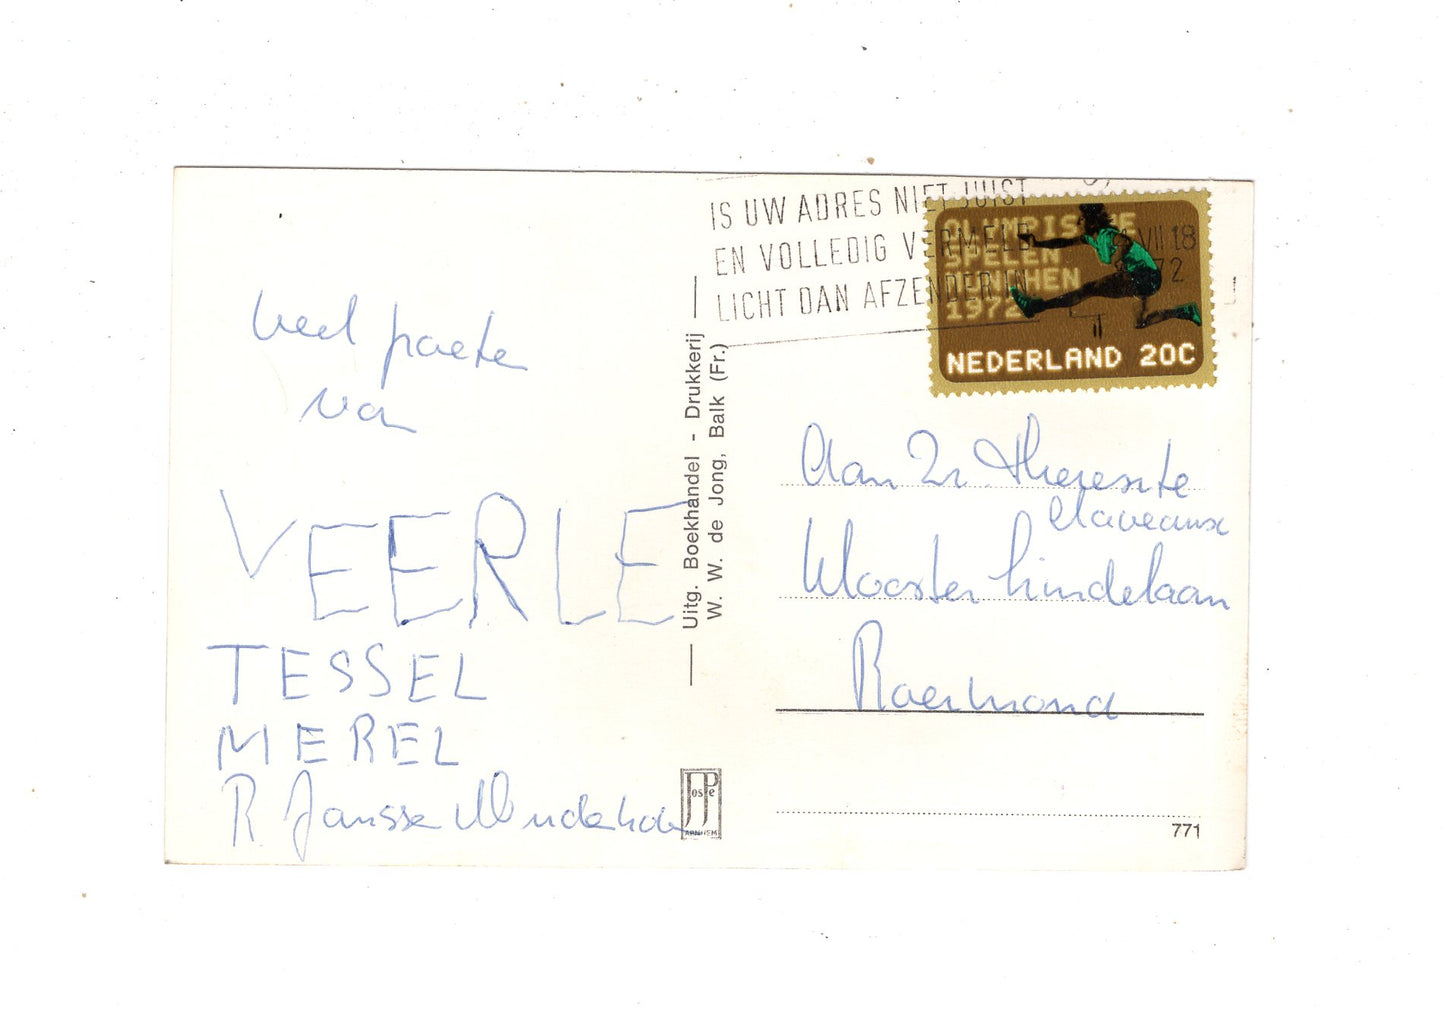 IS UW ADRES NIET JUIST
EN VOLLEDIG VERMELD
LICHT DAN AFZENDER IN
VII 18
72
OLYMPISCHE
SPELEN
MÜNCHEN
1972
NEDERLAND 20C
veel poeten
van
VEERLE
TESSEL
MEREL
R. Janssen
Uitg. Boekhandel - Drukkerij
W. W. de Jong, Balk (Fr.)
Aan Zr. Theresite
Klooster Lindelaan
Roermond
JosPe
ARNHEM
771